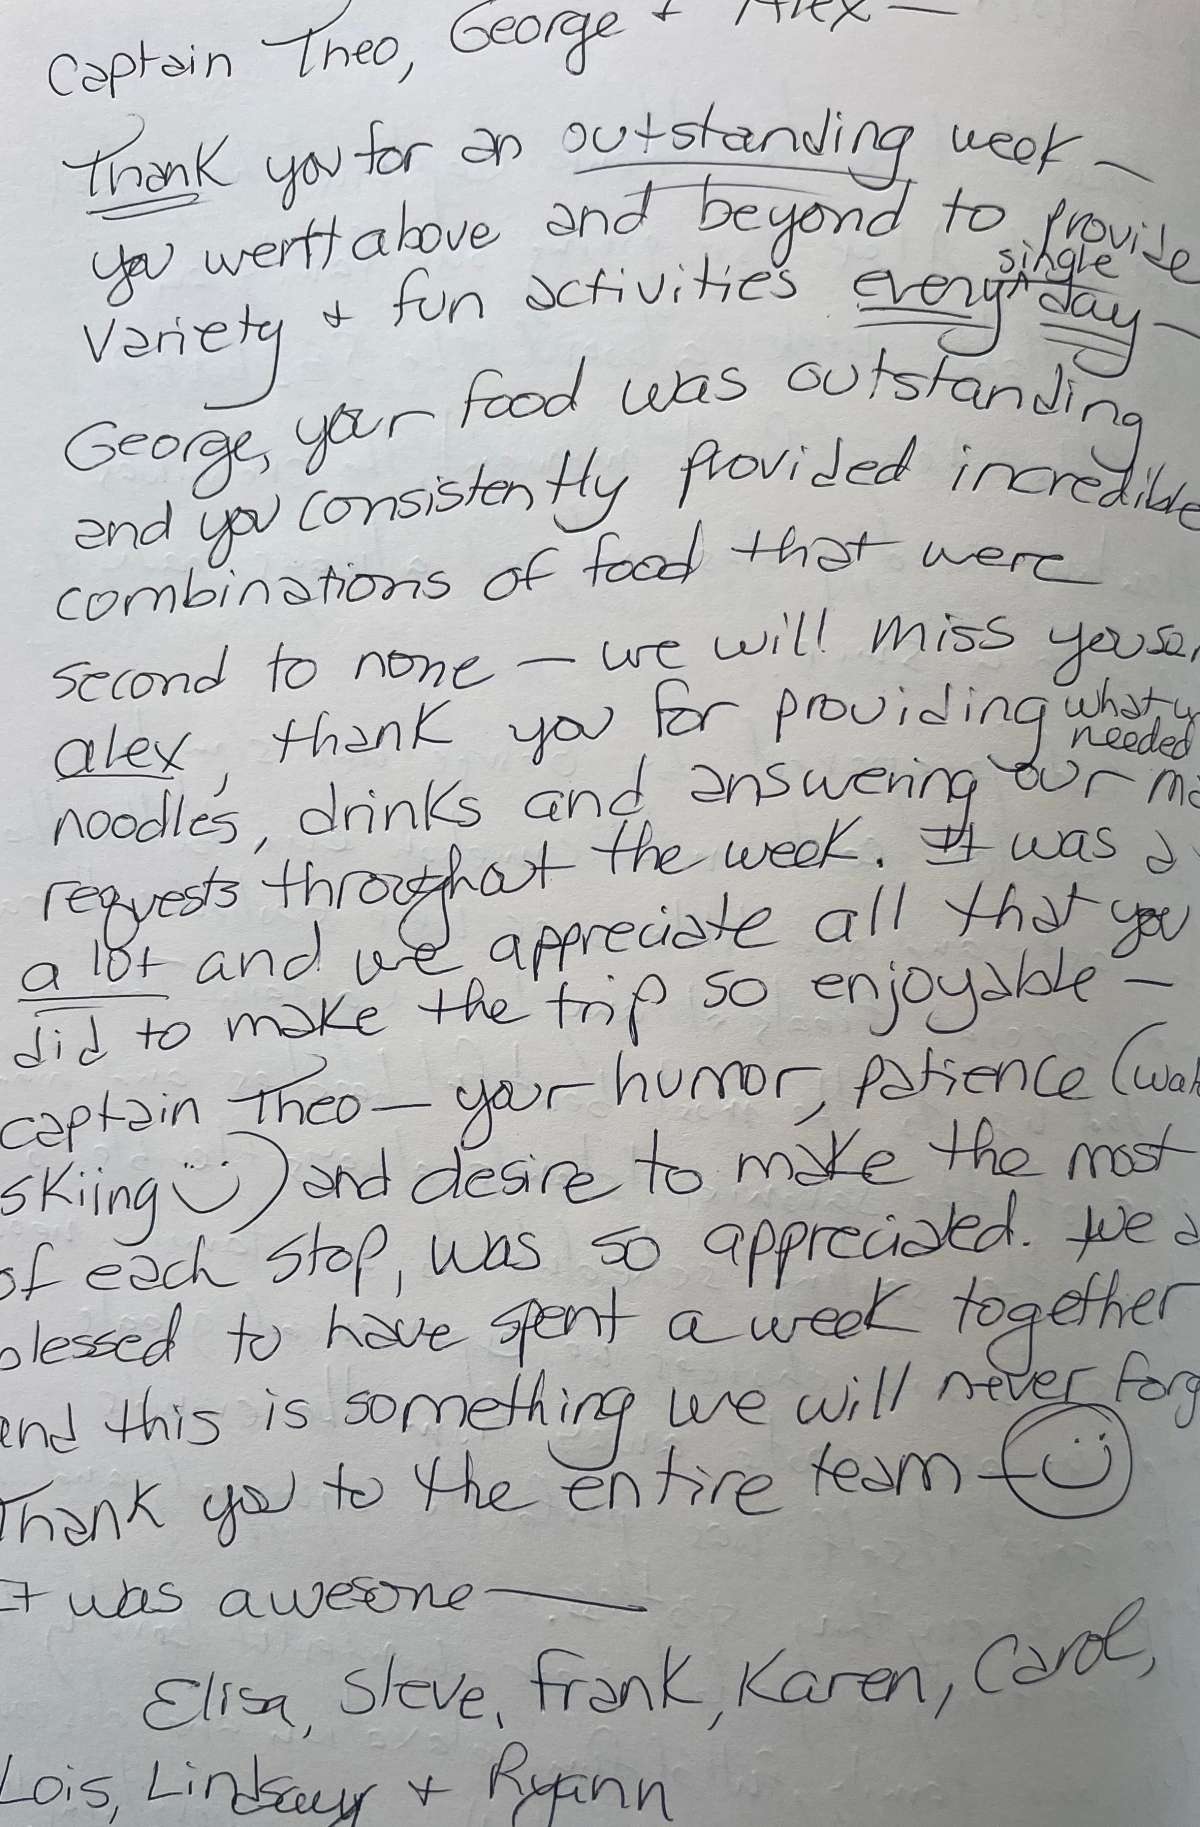 Captain Theo, George + Alex —
Thank you for an outstanding week —
you went above and beyond to provide
variety + fun activities every single day —
George, your food was outstanding
and you consistently provided incredible
combinations of food that were
second to none — we will miss you
alex, thank you for providing what needed
noodles, drinks and answering our
requests throughout the week. It was a
a lot and we appreciate all that you
did to make the trip so enjoyable —
captain Theo — your humor, patience (
skiing ☺) and desire to make the most
of each stop, was so appreciated. We
blessed to have spent a week together
and this is something we will never
Thank you to the entire team — ☺
It was awesome —
Elisa, Steve, Frank, Karen, Carol,
Lois, Lindsay + Ryann